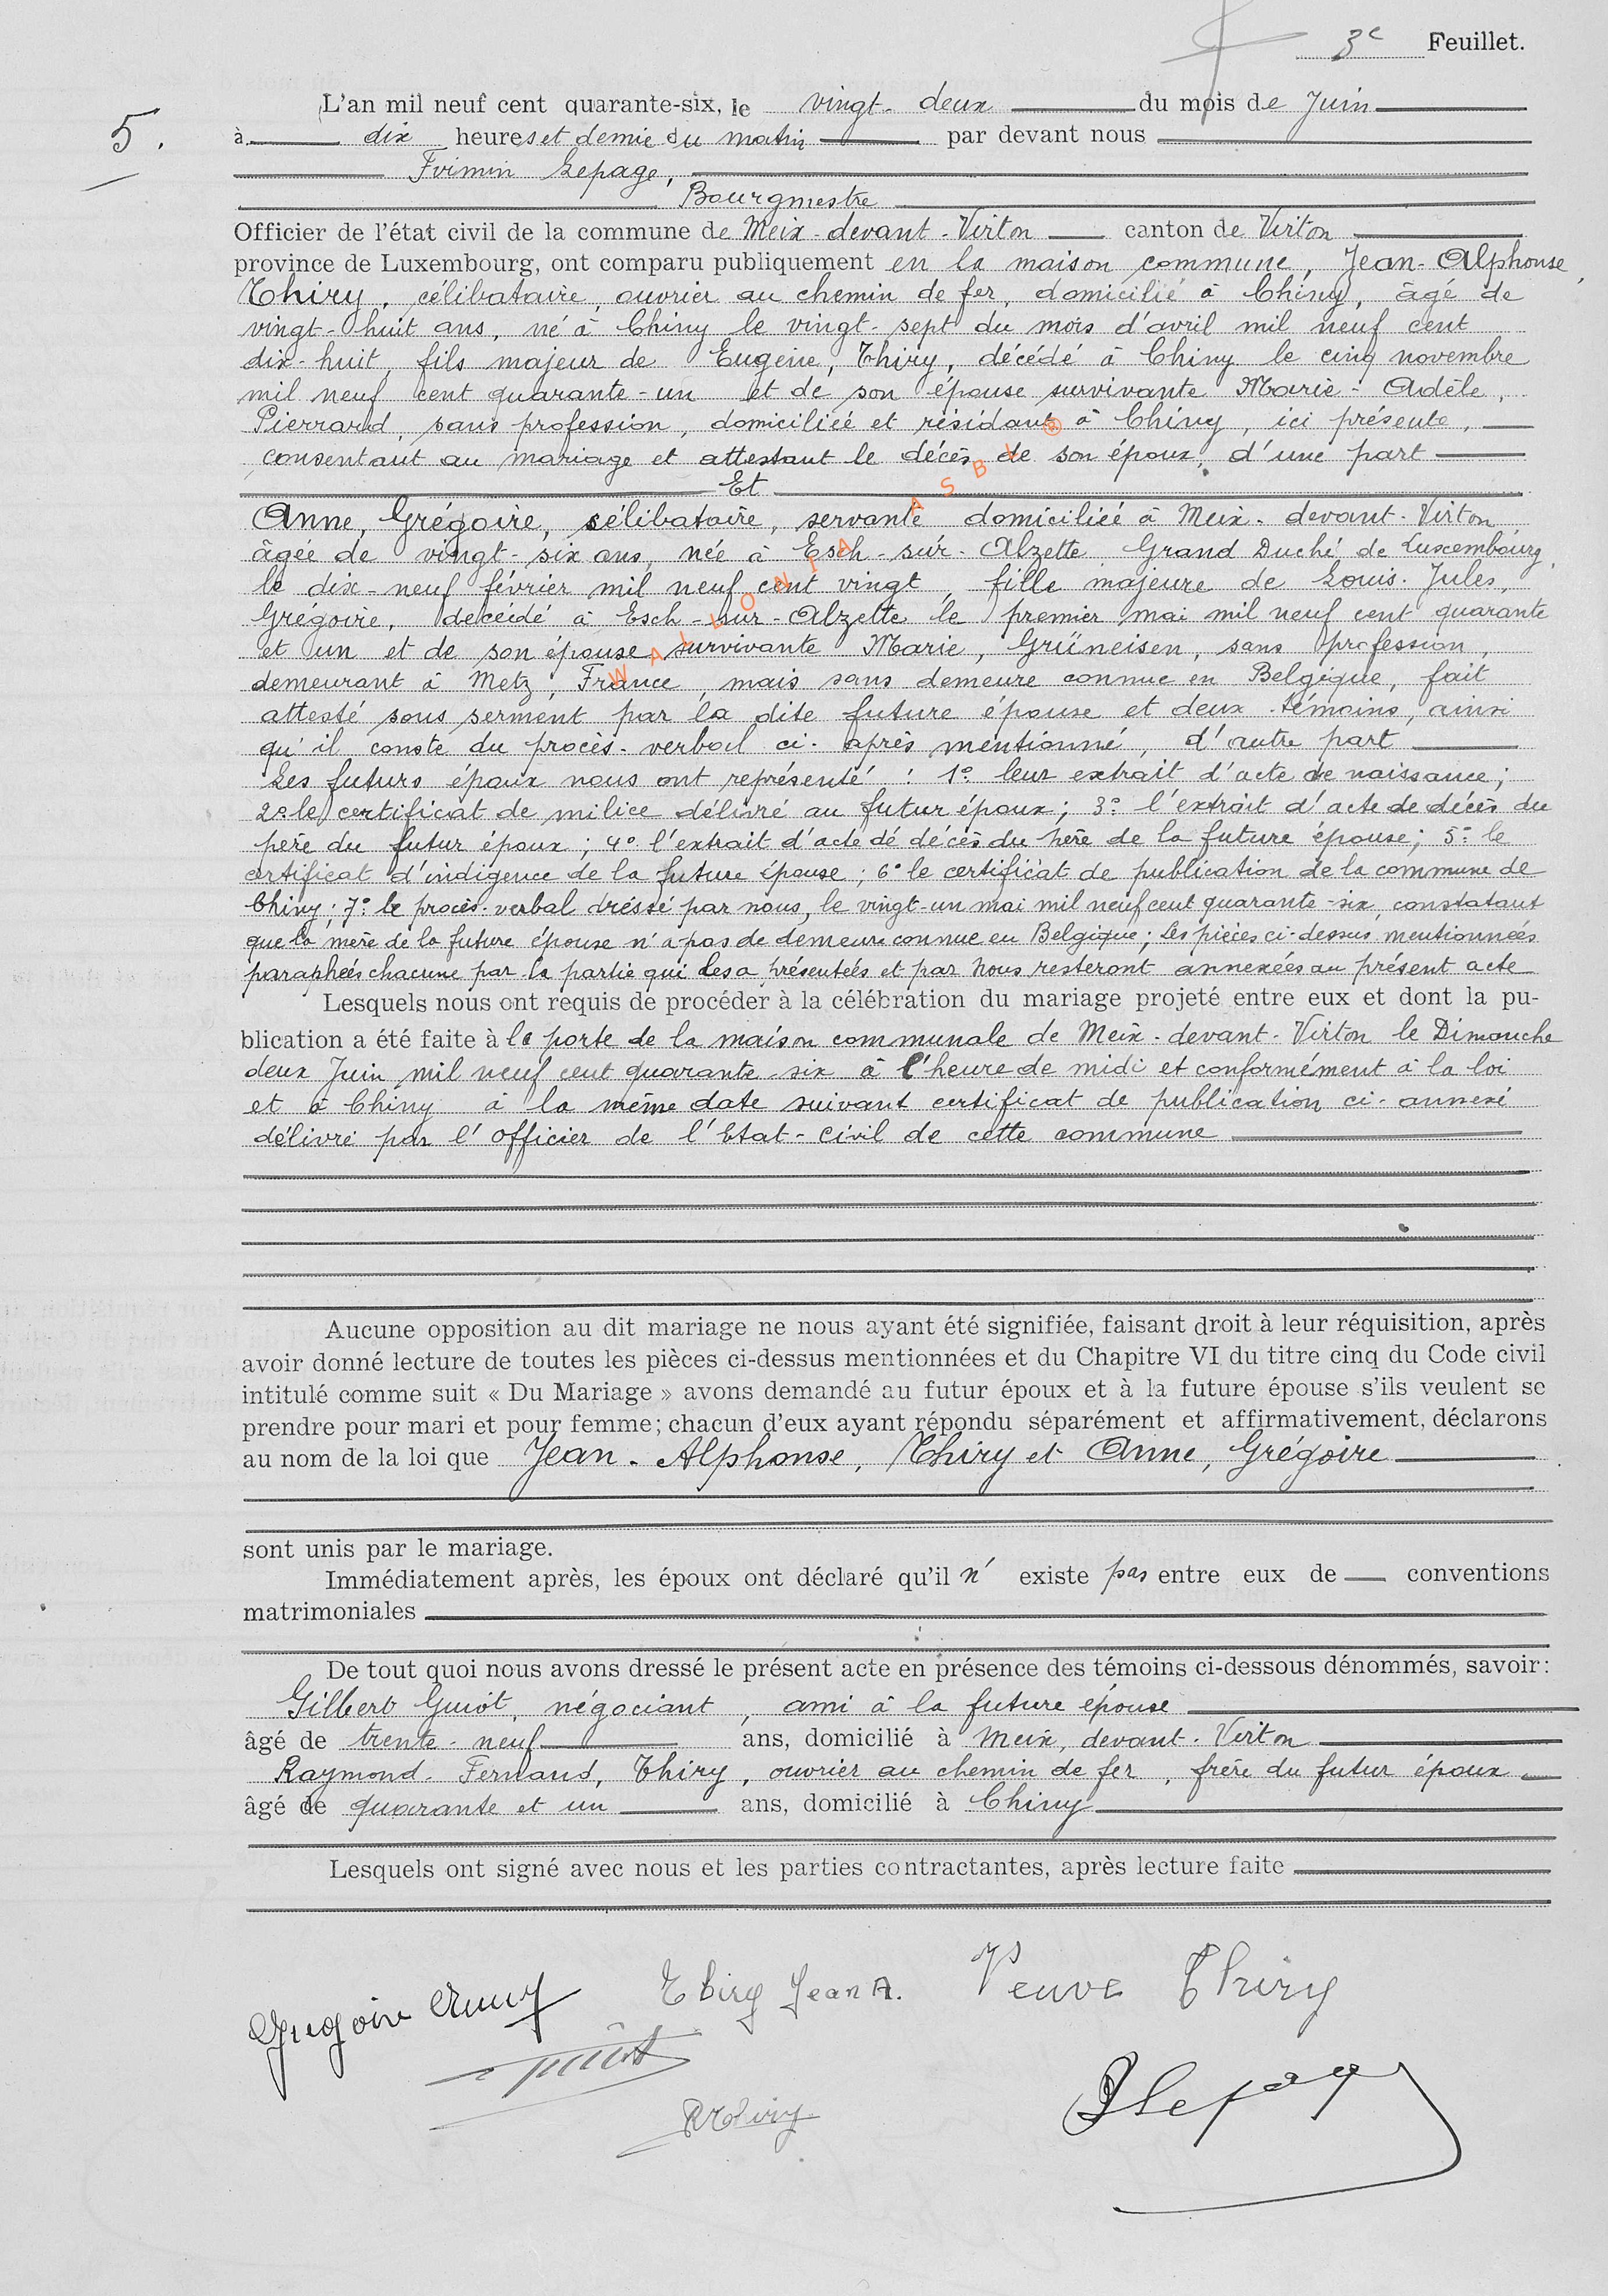 3e Feuillet.
5.
L'an mil neuf cent quarante-six, le vingt-deux du mois de Juin
à dix heures et demie du matin par devant nous
Firmin Lepage,
Bourgmestre
Officier de l'état civil de la commune de Meix-devant-Virton canton de Virton
province de Luxembourg, ont comparu publiquement en la maison commune, Jean-Alphonse
Thiry, célibataire, ouvrier au chemin de fer, domicilié à Chiny, âgé de
vingt-huit ans, né à Chiny le vingt-sept du mois d'avril mil neuf cent
dix-huit, fils majeur de Eugène, Thiry, décédé à Chiny le cinq novembre
mil neuf cent quarante-un et de son épouse survivante Marie-Adèle,
Pierrard, sans profession, domiciliée et résidant à Chiny, ici présente,
consentant au mariage et attestant le décès de son époux, d'une part
Et
Anne, Grégoire, célibataire, servante domiciliée à Meix-devant-Virton
âgée de vingt-six ans, née à Esch-sur-Alzette Grand Duché de Luxembourg,
le dix-neuf février mil neuf cent vingt, fille majeure de Louis-Jules,
Grégoire, décédé à Esch-sur-Alzette le premier mai mil neuf cent quarante
et un et de son épouse survivante Marie, Grüneisen, sans profession,
demeurant à Metz, France, mais sans demeure connue en Belgique, fait
attesté sous serment par la dite future épouse et deux témoins, ainsi
qu'il conste du procès-verbal ci-après mentionné, d'autre part
Les futurs époux nous ont représenté : 1° leur extrait d'acte de naissance;
2° le certificat de milice délivré au futur époux; 3° l'extrait d'acte de décès du
père du futur époux; 4° l'extrait d'acte dé décès du père de la future épouse; 5° le
certificat d'indigence de la future épouse; 6° le certificat de publication de la commune de
Chiny; 7° le procès-verbal dréssé par nous, le vingt-un mai mil neuf cent quarante-six, constatant
que la mère de la future épouse n'a pas de demeure connue en Belgique; Les pièces ci-dessus mentionnées
paraphées chacune par la partie qui les a présentées et par Nous resteront annexées au présent acte
Lesquels nous ont requis de procéder à la célébration du mariage projeté entre eux et dont la pu-
blication a été faite à la porte de la maison communale de Meix-devant-Virton le Dimanche
deux Juin mil neuf cent quarante-six à l'heure de midi et conformément à la loi
et à Chiny à la même date suivant certificat de publication ci-annexé
délivré par l'officier de l'Etat-Civil de cette commune
Aucune opposition au dit mariage ne nous ayant été signifiée, faisant droit à leur réquisition, après
avoir donné lecture de toutes les pièces ci-dessus mentionnées et du Chapitre VI du titre cinq du Code civil
intitulé comme suit « Du Mariage » avons demandé au futur époux et à la future épouse s'ils veulent se
prendre pour mari et pour femme; chacun d'eux ayant répondu séparément et affirmativement, déclarons
au nom de la loi que Jean-Alphonse, Thiry et Anne, Grégoire
sont unis par le mariage.
Immédiatement après, les époux ont déclaré qu'il n' existe pas entre eux de conventions
matrimoniales
De tout quoi nous avons dressé le présent acte en présence des témoins ci-dessous dénommés, savoir:
Gilbert Guiot, négociant, ami à la future épouse
âgé de trente-neuf ans, domicilié à Meix, devant-Virton
Raymond-Fernand, Thiry, ouvrier au chemin de fer, frère du futur époux
âgé de quarante et un ans, domicilié à Chiny
Lesquels ont signé avec nous et les parties contractantes, après lecture faite
Grégoire Anny Thiry Jean A. Veuve Thiry
RThiry
Lepage
WALLONIA ASBL ®